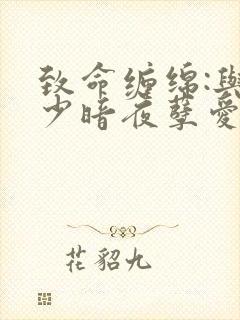 致命缠绵:與
少暗夜孽爱
花貂九